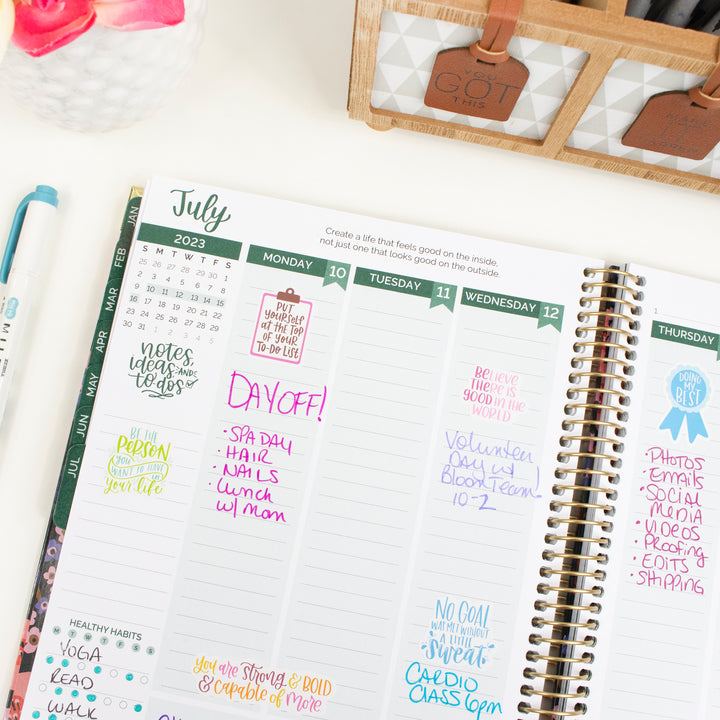 YOU
GOT
THIS
July
Create a life that feels good on the inside,
not just one that looks good on the outside.
2023
S M T W T F S
25 26 27 28 29 30 1
2 3 4 5 6 7 8
9 10 11 12 13 14 15
16 17 18 19 20 21 22
23 24 25 26 27 28 29
30 31 1 2 3 4 5
JAN
FEB
MAR
APR
MAY
JUN
JUL
notes,
ideas AND
to-dos
BE THE
PERSON
YOU
WANT TO HAVE
IN
your life
HEALTHY HABITS
M T W T F S S
YOGA
READ
WALK
MONDAY 10
PUT
YOURSELF
AT THE TOP
OF YOUR
TO-DO LIST
DAY OFF!
• SPA DAY
• HAIR
• NAILS
• Lunch
w/ mom
You are STRONG & BOLD
& Capable of MORE
TUESDAY 11
WEDNESDAY 12
BELIEVE
THERE IS
GOOD IN THE
WORLD
Volunteer
Day w/
Bloom Team!
10-2
NO GOAL
WAS MET WITHOUT
A LITTLE
Sweat
CARDIO
CLASS 6pm
1
THURSDAY
DOING MY
BEST
• PHOTOS
• Emails
• SOCIAL
MEDIA
• VIDEOS
• Proofing
• EDITS
• SHIPPING